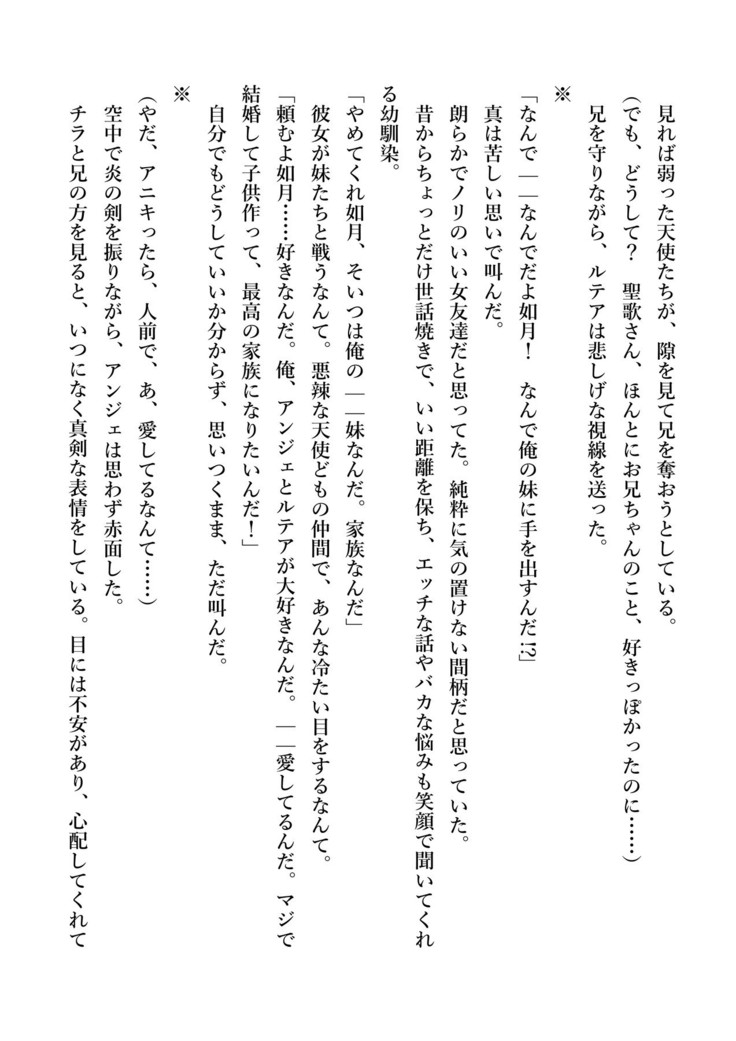 見れば弱った天使たちが、隙を見て兄を奪おうとしている。
(でも、どうして？　聖歌さん、ほんとにお兄ちゃんのこと、好きっぽかったのに……)
兄を守りながら、ルテアは悲しげな視線を送った。
※
「なんで――なんでだよ如月！　なんで俺の妹に手を出すんだ!?」
真は苦しい思いで叫んだ。
朗らかでノリのいい女友達だと思ってた。純粋に気の置けない間柄だと思っていた。
昔からちょっとだけ世話焼きで、いい距離を保ち、エッチな話やバカな悩みも笑顔で聞いてくれ
る幼馴染。
「やめてくれ如月、そいつは俺の――妹なんだ。家族なんだ」
彼女が妹たちと戦うなんて。悪辣な天使どもの仲間で、あんな冷たい目をするなんて。
「頼むよ如月……好きなんだ。俺、アンジェとルテアが大好きなんだ。――愛してるんだ。マジで
結婚して子供作って、最高の家族になりたいんだ！」
自分でもどうしていいか分からず、思いつくまま、ただ叫んだ。
※
(やだ、アニキったら、人前で、あ、愛してるなんて……)
空中で炎の剣を振りながら、アンジェは思わず赤面した。
チラと兄の方を見ると、いつになく真剣な表情をしている。目には不安があり、心配してくれて